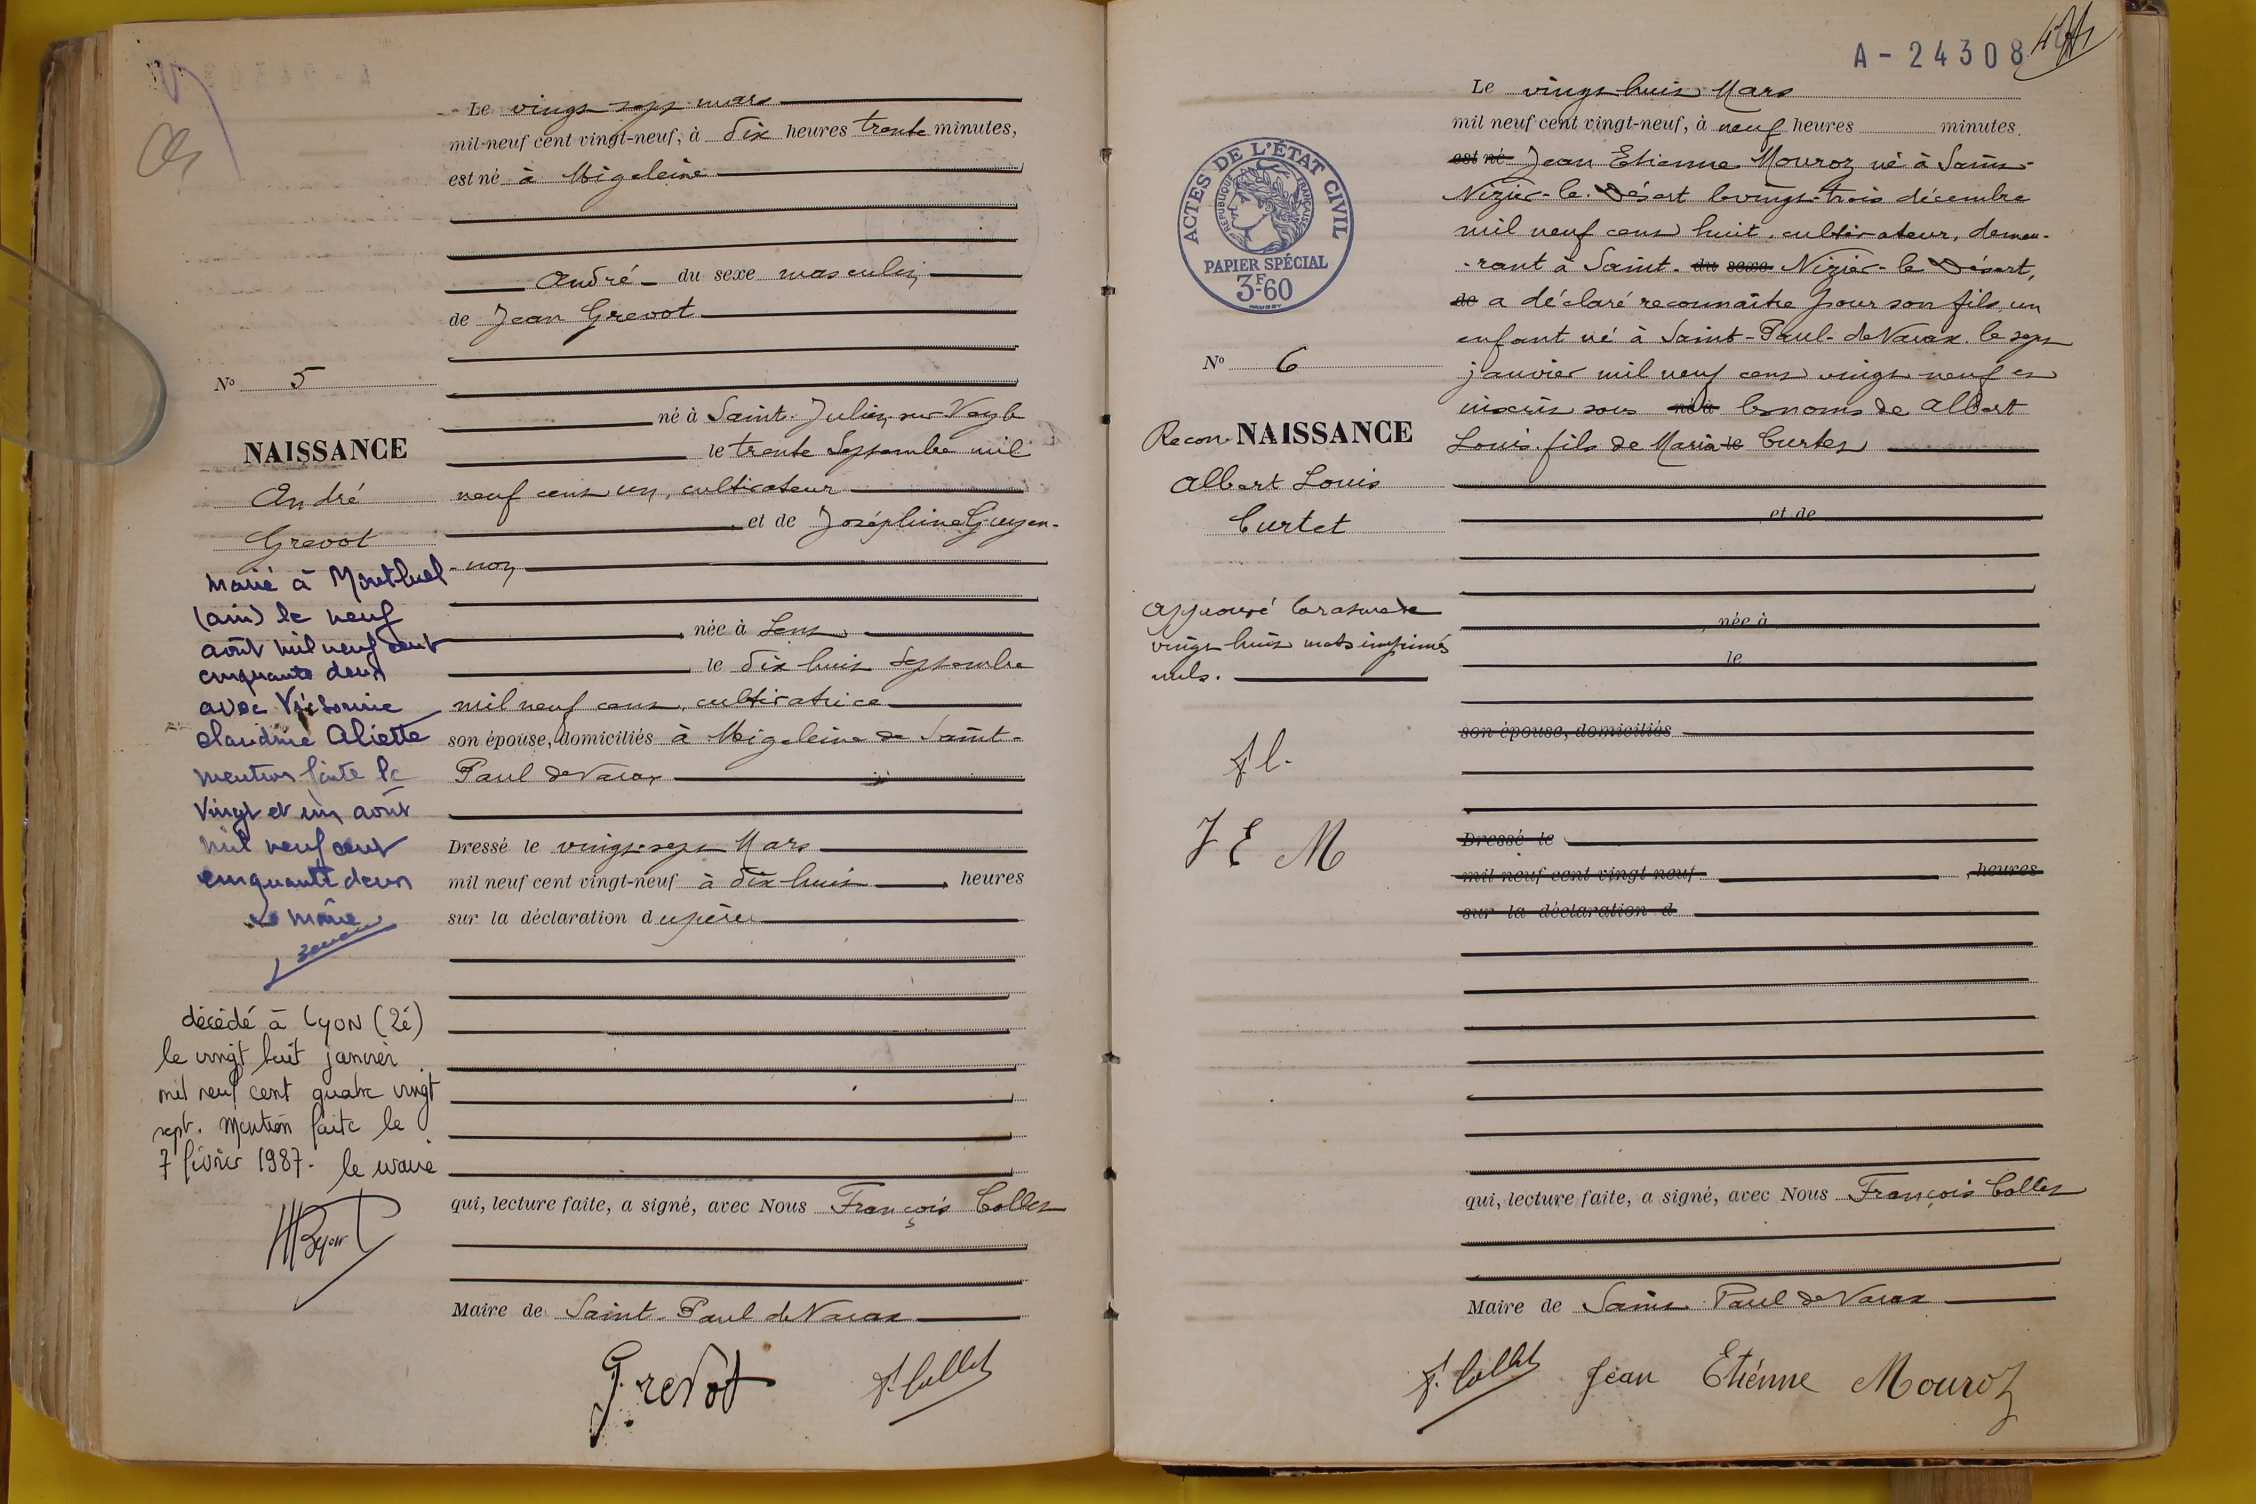 Le vingt sept mars
mil-neuf cent vingt-neuf, à dix heures trente minutes,
est né à Migeleine
André du sexe masculin
de Jean Grevot
né à Saint-Julien-sur-Veyle
le trente Septembre mil
neuf cent un, cultivateur
et de Joséphine Guyen-
-non
née à Lent
le dix huit Septembre
mil neuf cent, cultivatrice
son épouse, domiciliés à Migeleine de Saint-
Paul de Varax
Dressé le vingt-sept Mars
mil neuf cent vingt-neuf à dix-huit heures
sur la déclaration du père
qui, lecture faite, a signé, avec Nous François Collet
Maire de Saint-Paul de Varax
Grevot F. Collet
No 5
NAISSANCE
André
Grevot
marié à Montluel
(ain) le neuf
août mil neuf cent
cinquante deux
avec
claudine Aliette
mention faite le
vingt et un août
mil neuf cent
cinquante deux
le maire
décédé à LYON (2é)
le vingt huit janvier
mil neuf cent quatre vingt
sept. Mention faite le
7 février 1987. le maire
A-24308
Le vingt-huit Mars
mil neuf cent vingt-neuf, à neuf heures minutes.
est né Jean Etienne Mouroz né à Saint-
Nizier-le-Désert le vingt-trois décembre
mil neuf cent huit, cultivateur, demeu-
-rant à Saint- du sexe Nizier-le Désert,
de a déclaré reconnaître pour son fils, un
enfant né à Saint-Paul-de Varax le sept
janvier mil neuf cent vingt-neuf et
inscrit sous né à les noms de Albert
Louis, fils de Maria le Curtet
et de
née à
le
son épouse, domiciliés
Dressé le
mil neuf cent vingt-neuf , heures
sur la déclaration d
qui, lecture faite, a signé, avec Nous François Collet
Maire de Saint-Paul de Varax
F. Collet Jean Etiénne Mouroz
ACTES DE L'ÉTAT CIVIL
RÉPUBLIQUE FRANÇAISE
PAPIER SPÉCIAL
3F-60
No 6
Recon. NAISSANCE
Albert Louis
Curtet
Approuvé la rature de
vingt huit mots imprimés
nuls.
J E M